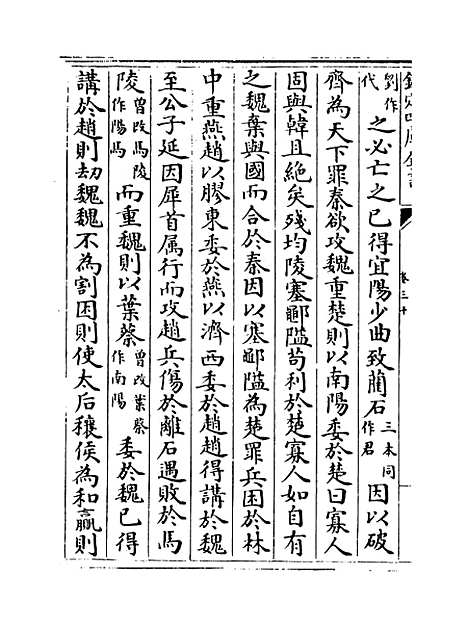 欽定四庫全書
卷三十
劉作代之必亡之已得宜陽少曲致藺石三本同作君因以破
齊為天下罪秦欲攻魏重楚則以南陽委於楚曰寡人
固與韓且絶矣殘均陵塞鄳隘苟利於楚寡人如自有
之魏棄與國而合於秦因以塞鄳隘為楚罪兵困於林
中重燕趙以膠東委於燕以濟西委於趙趙得講於魏
至公子延因犀首属行而攻趙兵傷於離石遇敗於馬
陵曾改馬陵作陽馬而重魏則以葉蔡曾改葉蔡作南陽委於魏已得
講於趙則刼魏魏不為割因則使太后穰侯為和贏則